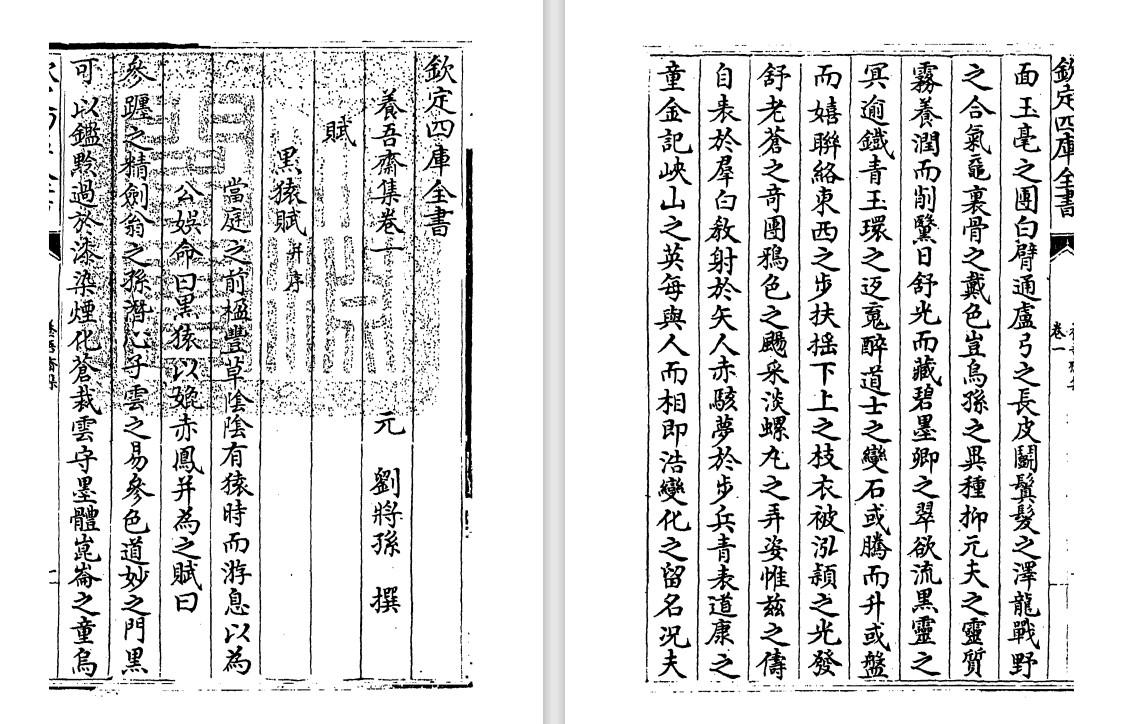 欽定四庫全書
養吾齋集卷一
元 劉將孫 撰
賦
黑猿賦并序
當庭之前楹豐草陰陰有猿時而游息以為
公娛命曰黑猿以媲赤鳳并為之賦曰
參躔之精劍翁之孫潛心子雲之易參色道妙之門黑
可以鑑黔過於漆染煙化蒼裁雲守墨體崑崙之童烏
欽定四庫全書
卷一
面玉毫之團白臂通盧弓之長皮鬬鬒髮之澤龍戰野
之合氣黿裏骨之戴色豈烏孫之異種抑元夫之靈質
霧養潤而削鷖日舒光而藏碧墨卿之翠欲流黑靈之
冥逾鐵青玉環之返䰟醉道士之變石或騰而升或盤
而嬉聯絡東西之步扶揺下上之枝衣被泓頴之光發
舒老蒼之奇團鴉色之颺采淡螺丸之弄姿惟兹之儔
自表於羣白敎射於矢人赤駭夢於步兵青表道康之
童金記峽山之英每與人而相即浩變化之留名况夫